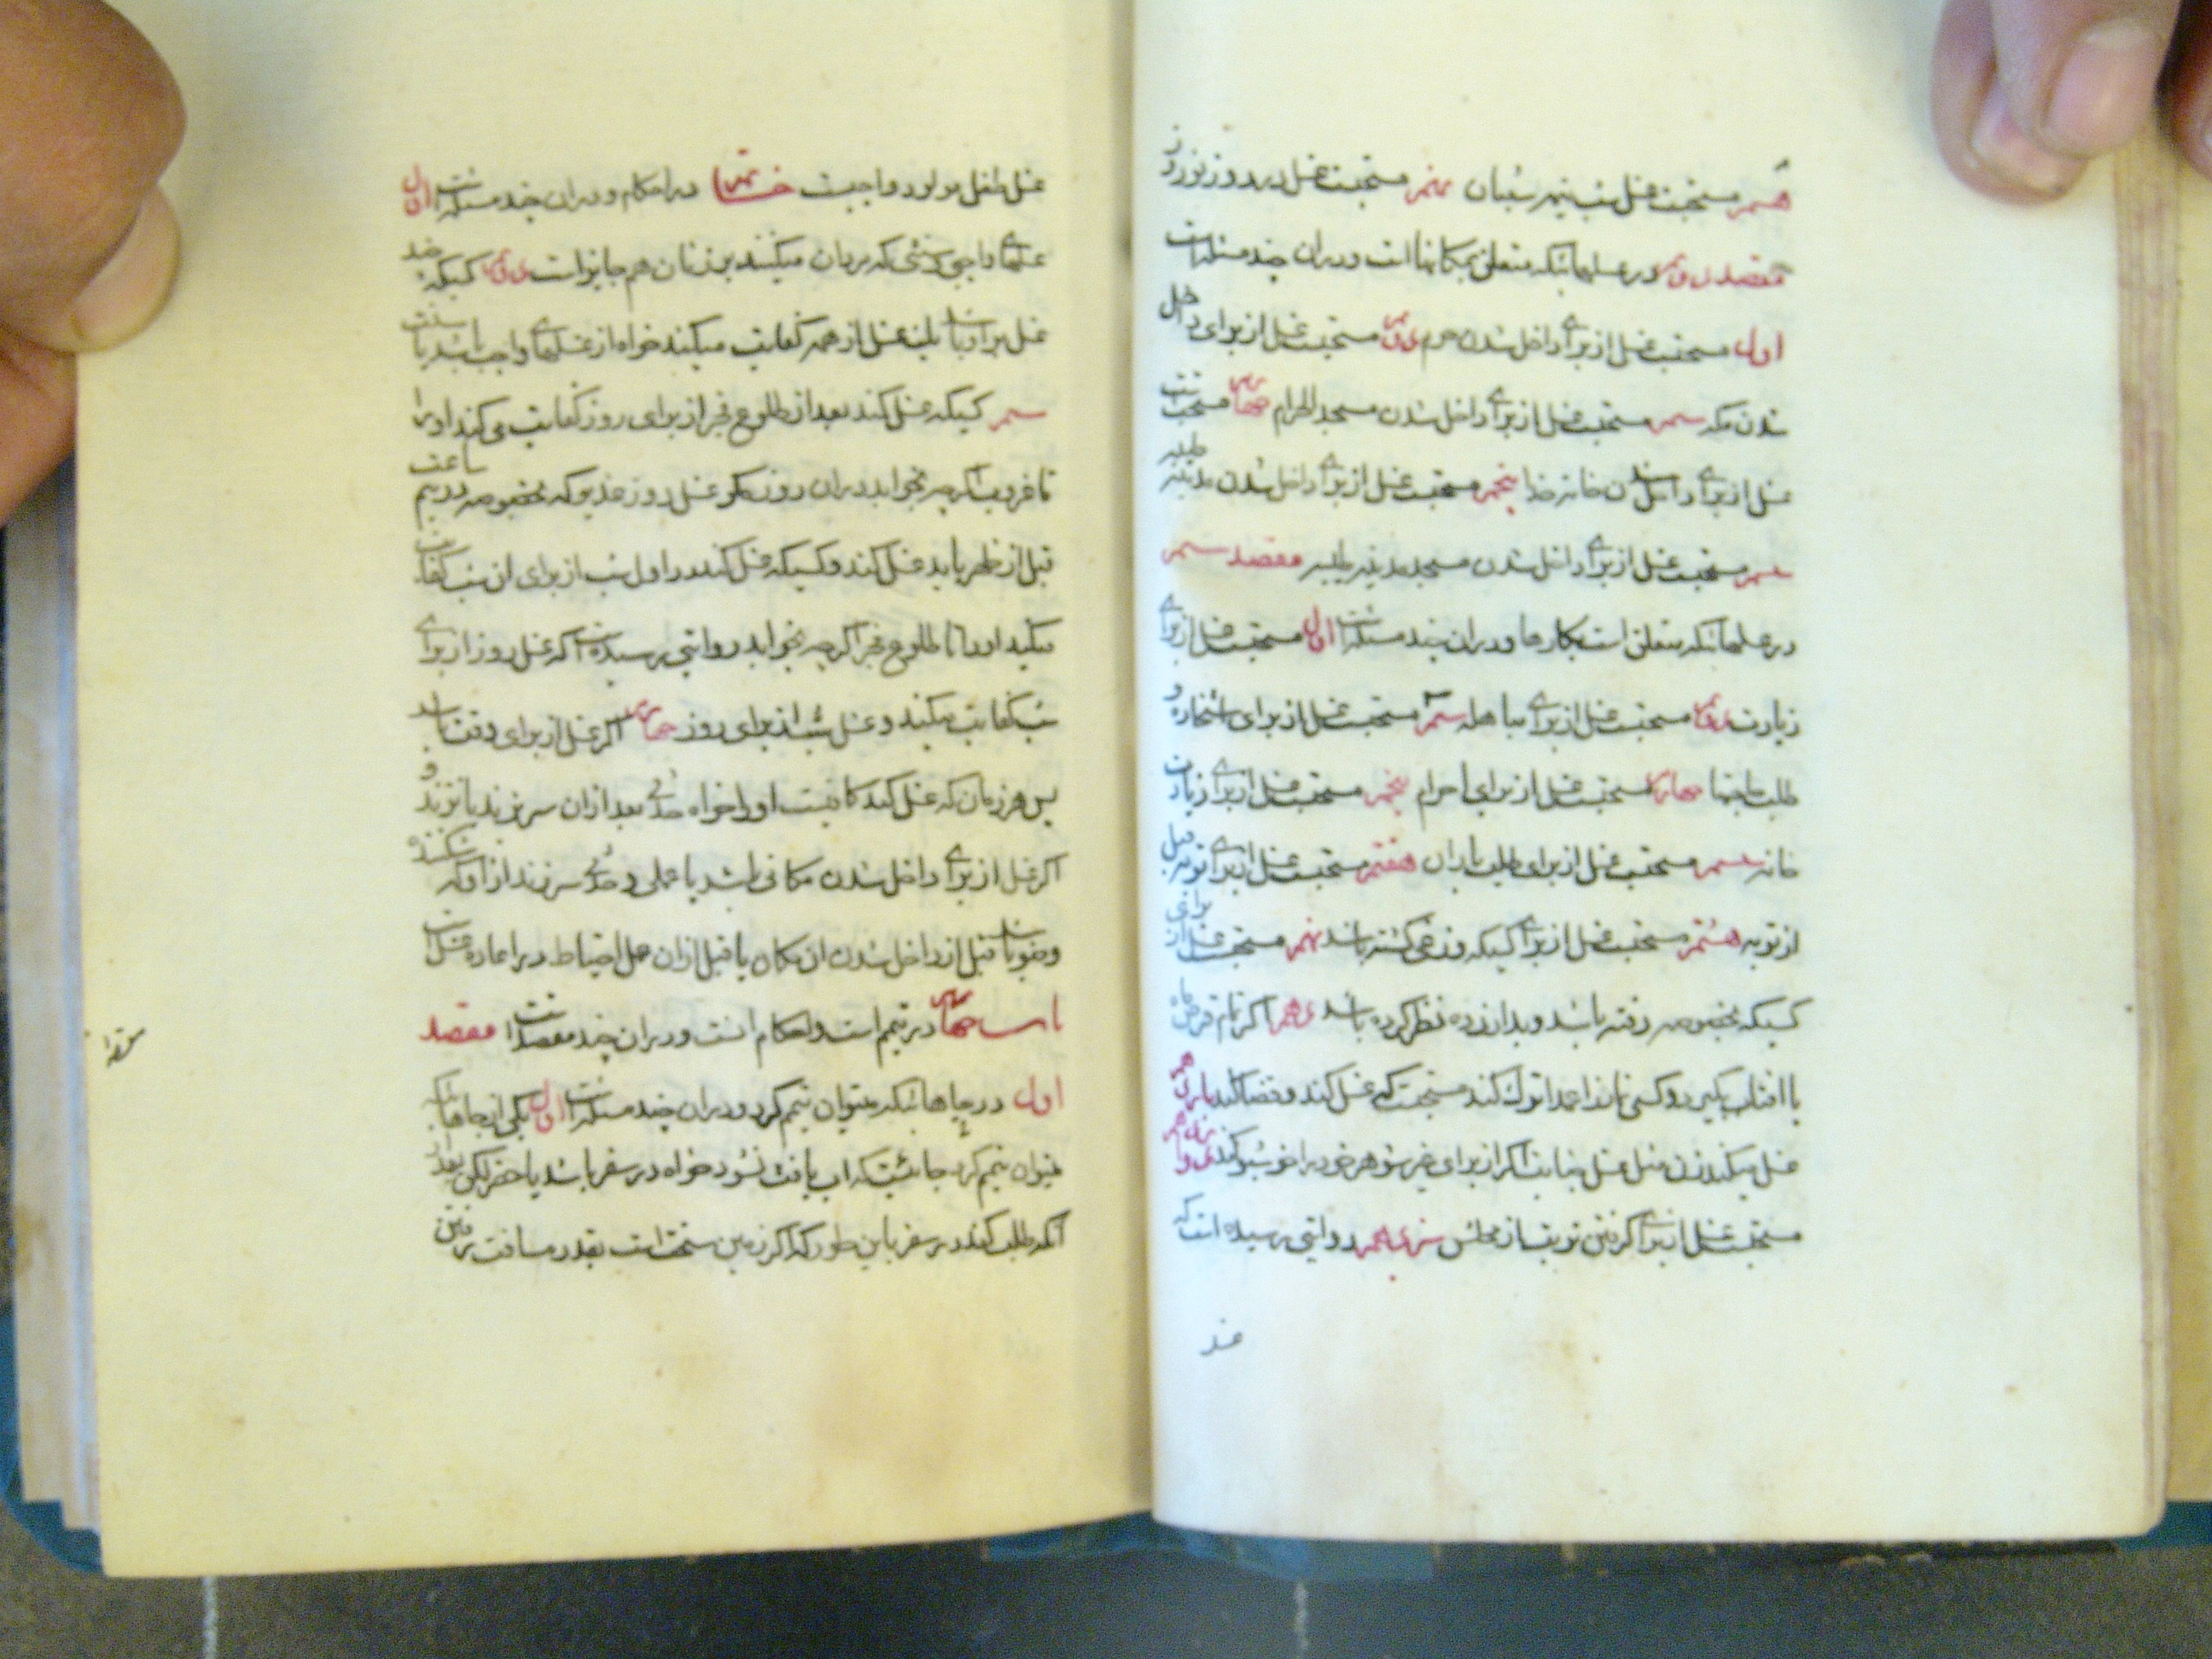 هشتم مستحبست غسل شب نیمه شعبان نهم مستحبست غسل در روز نوروز
مقصد دوم در غسلهائیکه متعلق بمکانها است و در ان چند مسئله است
اول مستحبست غسل از برای داخل شدن حرم دوم مستحبست غسل از برای داخل
شدن مکه سیم مستحبست غسل از برای داخل شدن مسجد الحرام چهارم مستحبست
غسل از برای داخل شدن خانه خدا پنجم مستحبست غسل از برای داخل شدن مدینه طیبه
ششم مستحبست غسل از برای داخل شدن مسجد مدینه طیبه مقصد سیم
در غسلهائیکه متعلق است بکارها و در ان چند مسئله است اول مستحبست غسل از برای
زیارت دوم مستحبست غسل از برای مباهله سیم مستحبست غسل از برای استخاره و
طلب حاجتها چهارم مستحبست غسل از برای احرام پنجم مستحبست غسل از برای زیارت
خانه ششم مستحبست غسل از برای طلب باران هفتم مستحبست غسل از برای توبه قبل
از توبه هشتم مستحبست غسل از برای کسیکه وزغی کشته باشد نهم مستحبست غسل از برای
کسیکه بخصوصه رفته باشد و بدار زده نظر کرده باشد دهم اگر تمام قرص ماه
یا افتاب بگیرد و کسی نماز را عمدا ترک کند مستحبست که غسل کند و قضا کند یازدهم
غسل میکند زن مثل غسل جنابت اگر از برای غیر شوهر خود را خوشبو کند دوازدهم
مستحبست غسل از برای گرفتن تربت از محلش سیزدهم روایتی رسیده است که
غسل طفل مولود واجبست خاتمه در احکام و در ان چند مسئله است اول
غسلهای واجبی و سنتی که مردان میکنند بر زنان هم جایز است دوم کسیکه چند
غسل بر او باشد یک غسل از همه کفایت میکند خواه از غسلهای واجب باشد یا سنت
سیم کسیکه غسل کند بعد از طلوع فجر از برای روز کفایت می کند او را
تا غروب اگرچه بخوابد در ان روز مگر غسل روز غدیر که بخصوصه در نیم ساعت
قبل از ظهر باید غسل کند و کسیکه غسل کند در اول شب از برای ان شب کفایت
میکند او را تا طلوع فجر اگرچه بخوابد روایتی رسیده است که غسل روز از برای
شب کفایت میکند و غسل شب از برای روز چهارم اگر غسل از برای وقت باشد
پس هر زمان که غسل کند کافیست او را خواه حدثی بعد از ان سر بزند یا نزند و
اگر غسل از برای داخل شدن مکانی باشد یا عملی و حدثی سر زند از او که شکننده
وضو باشد قبل از داخل شدن ان مکان یا قبل از ان عمل احتیاط در اعاده غسل است
باب چهارم در تیمم است و احکام انست و در ان چند مقصد است مقصد
اول در جاهائیکه میتوان تیمم کرد و در ان چند مسئله است اول یکی از جاهائیکه
میتوان تیمم کرد جائیست که اب یافت نشود خواه در سفر باشد یا حضر لکن بعد از
آنکه طلب کند در سفر باین طور که اگر زمین سختست بقدر مسافت رفتن